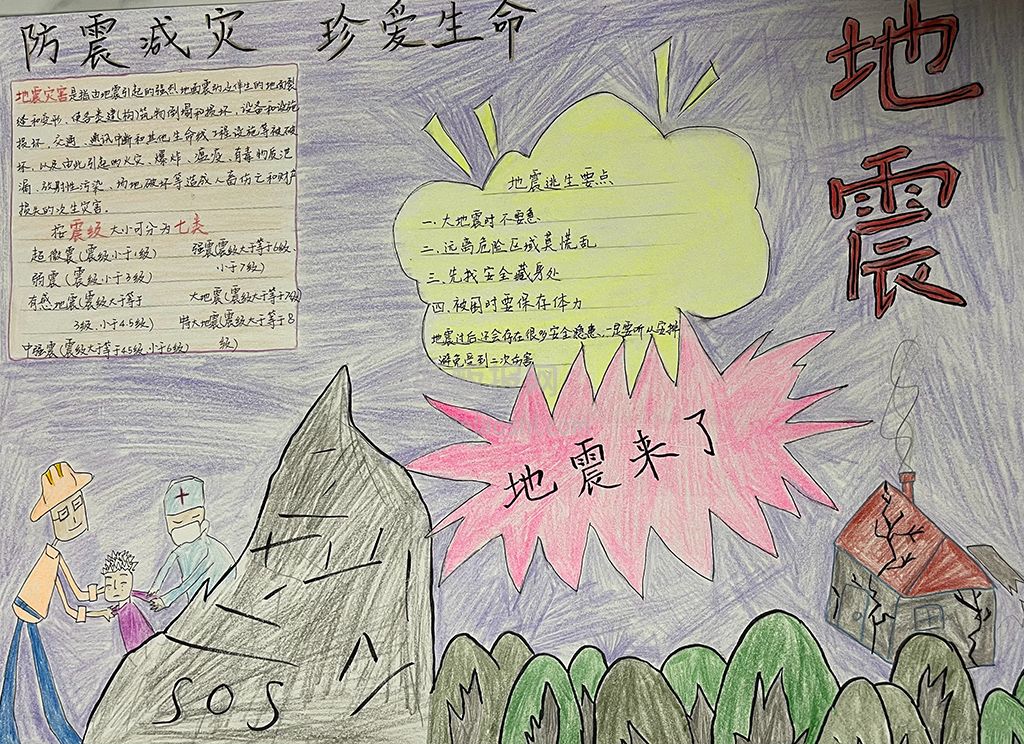 防震减灾 珍爱生命
地震
地震灾害是指由地震引起的强烈地面震动及伴生的地面裂
缝和变形,使各类建(构)筑物倒塌和损坏,设备和设施
损坏,交通、通讯中断和其他生命线工程设施等被破
坏,以及由此引起的火灾、爆炸、瘟疫、有毒物质泄
漏、放射性污染、场地破坏等造成人畜伤亡和财产
损失的次生灾害.
按震级大小可分为七类
超微震(震级小于1级)
弱震(震级小于3级)
有感地震(震级大于等于
3级,小于4.5级)
中强震(震级大于等于4.5级,小于6级)
强震(震级大于等于6级,
小于7级)
大地震(震级大于等于7级
特大地震(震级大于等于8
级)
地震逃生要点
一.大地震时不要急
二.远离危险区域莫慌乱
三.先找安全藏身处
四.被困时要保存体力
地震过后还会存在很多安全隐患,一定要听从安排
避免受到二次伤害
地震来了
SOS